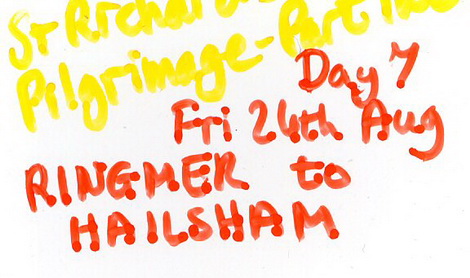 St Richard
Pilgrimage - Part
Day 7
Fri 24th Aug
RINGMER to
HAILSHAM